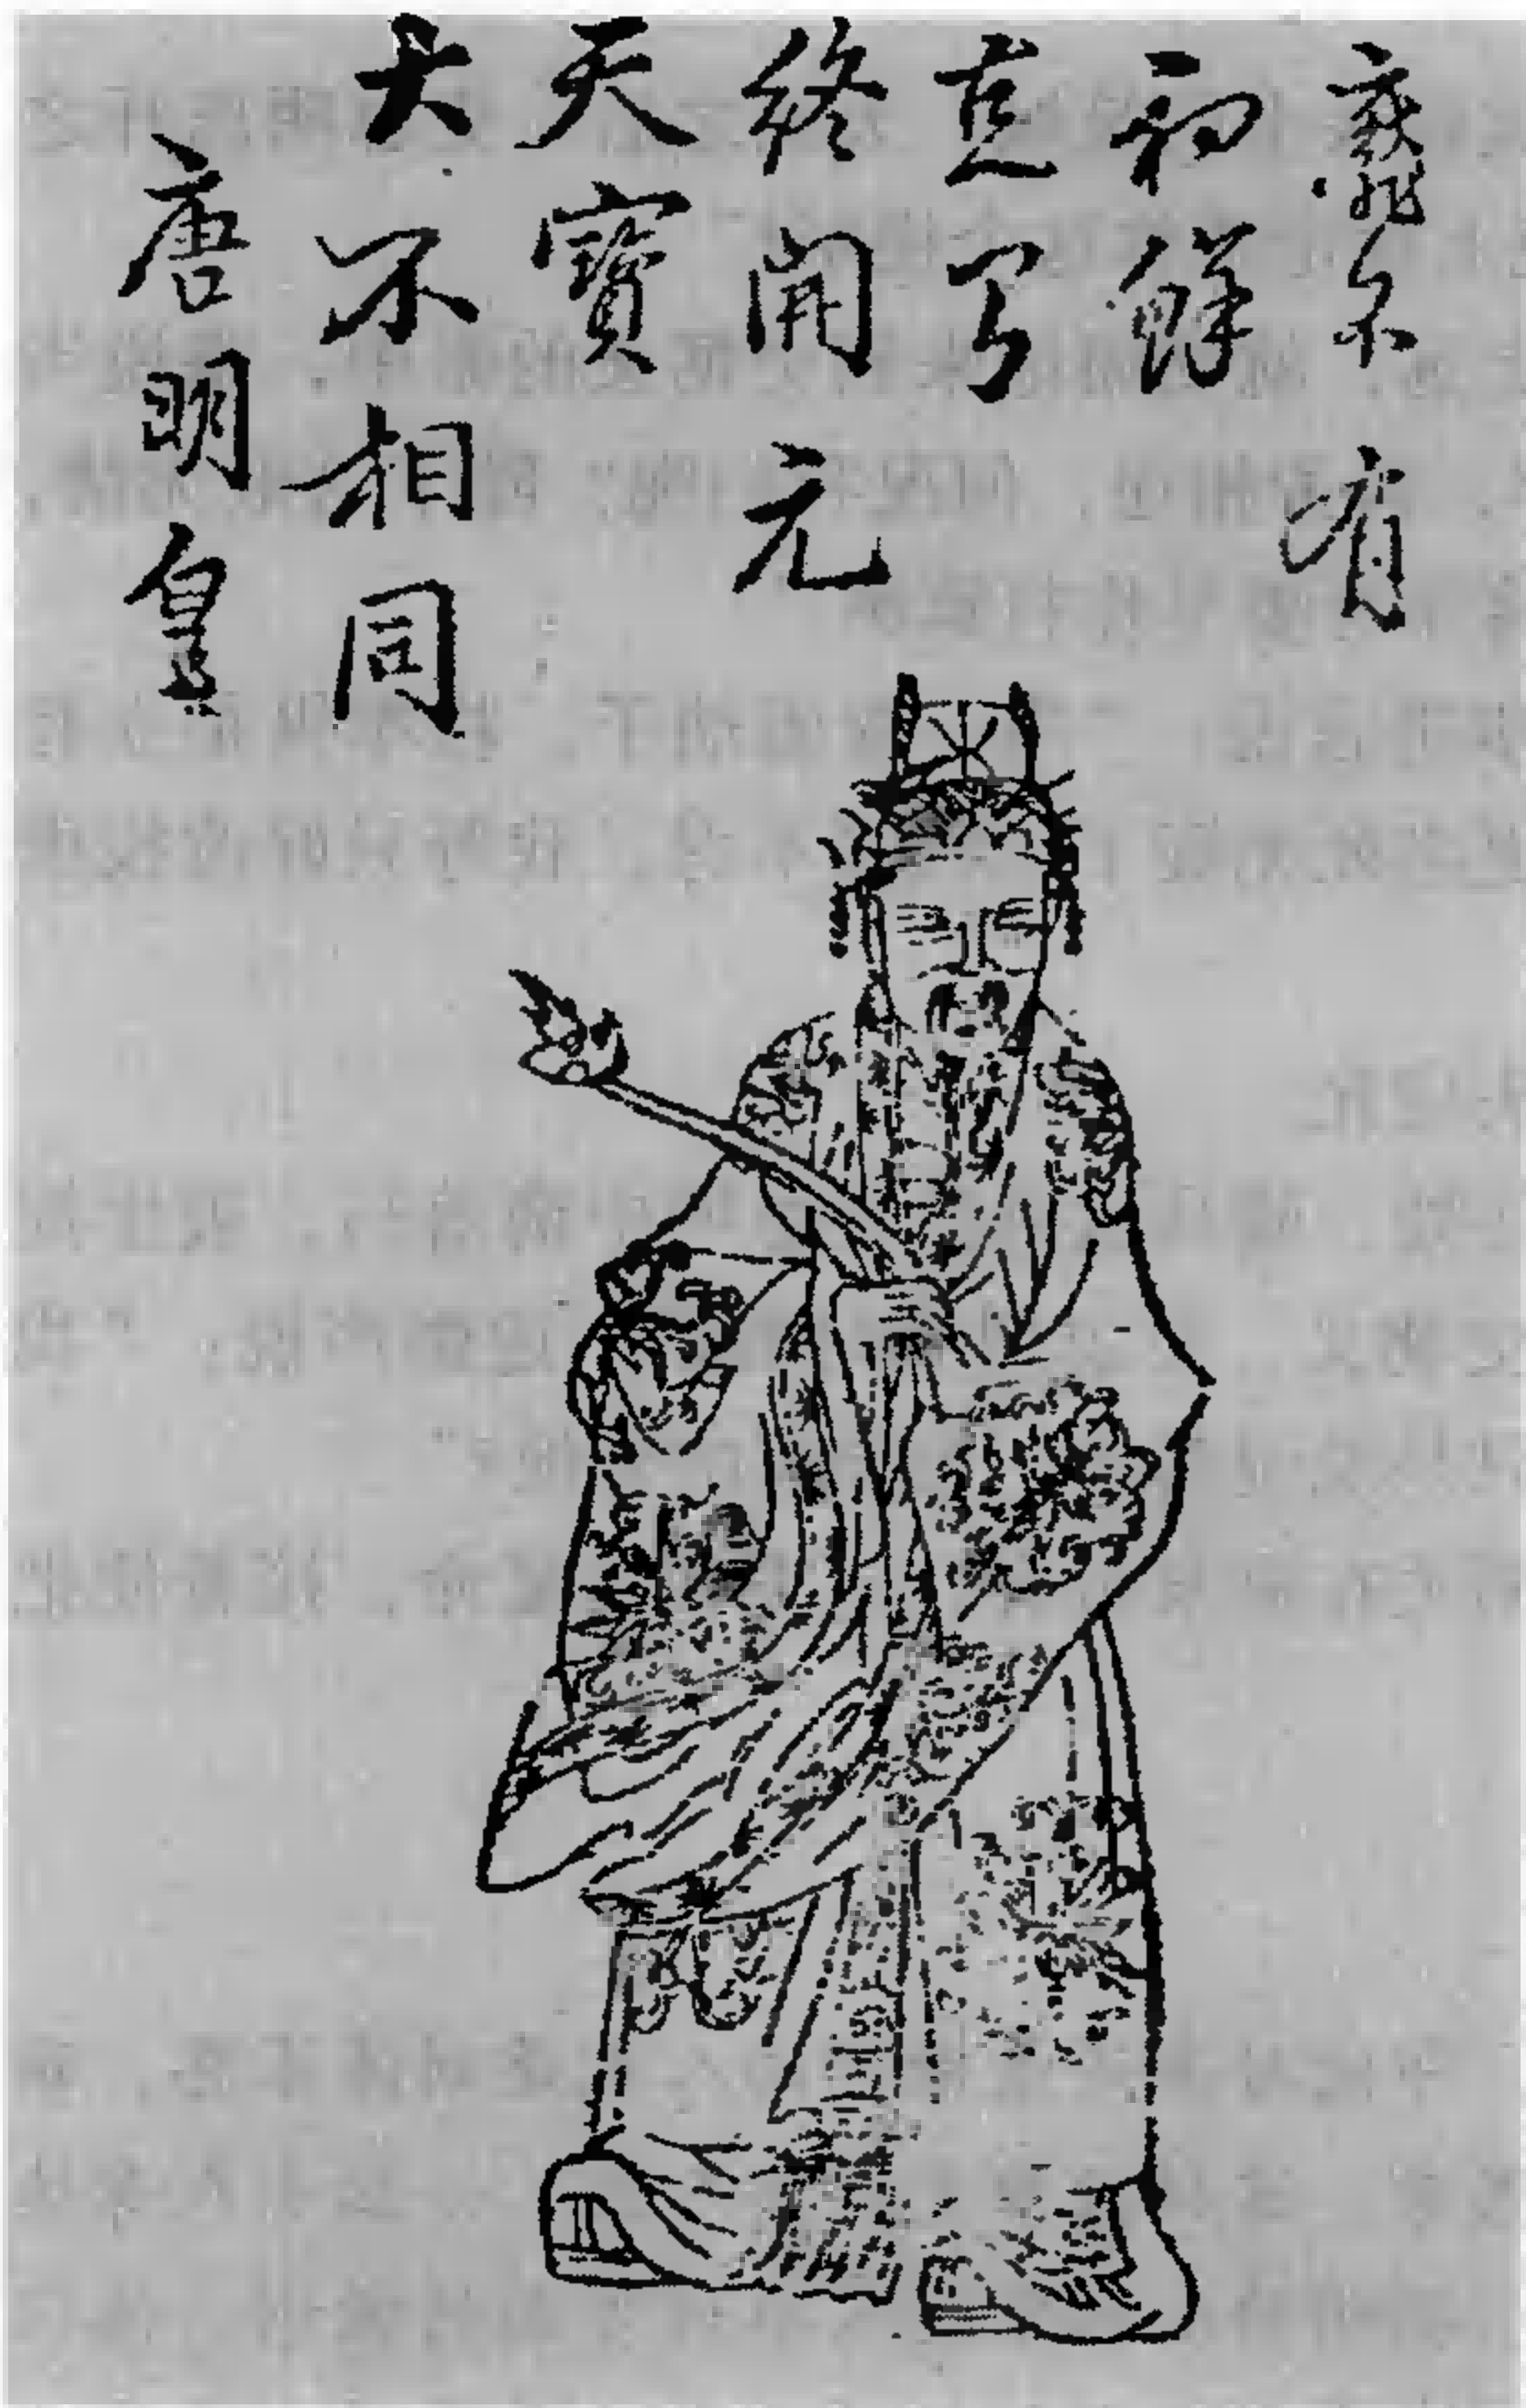 靡不有
初鮮
克有
終開元
天寶
大不相同
唐明皇